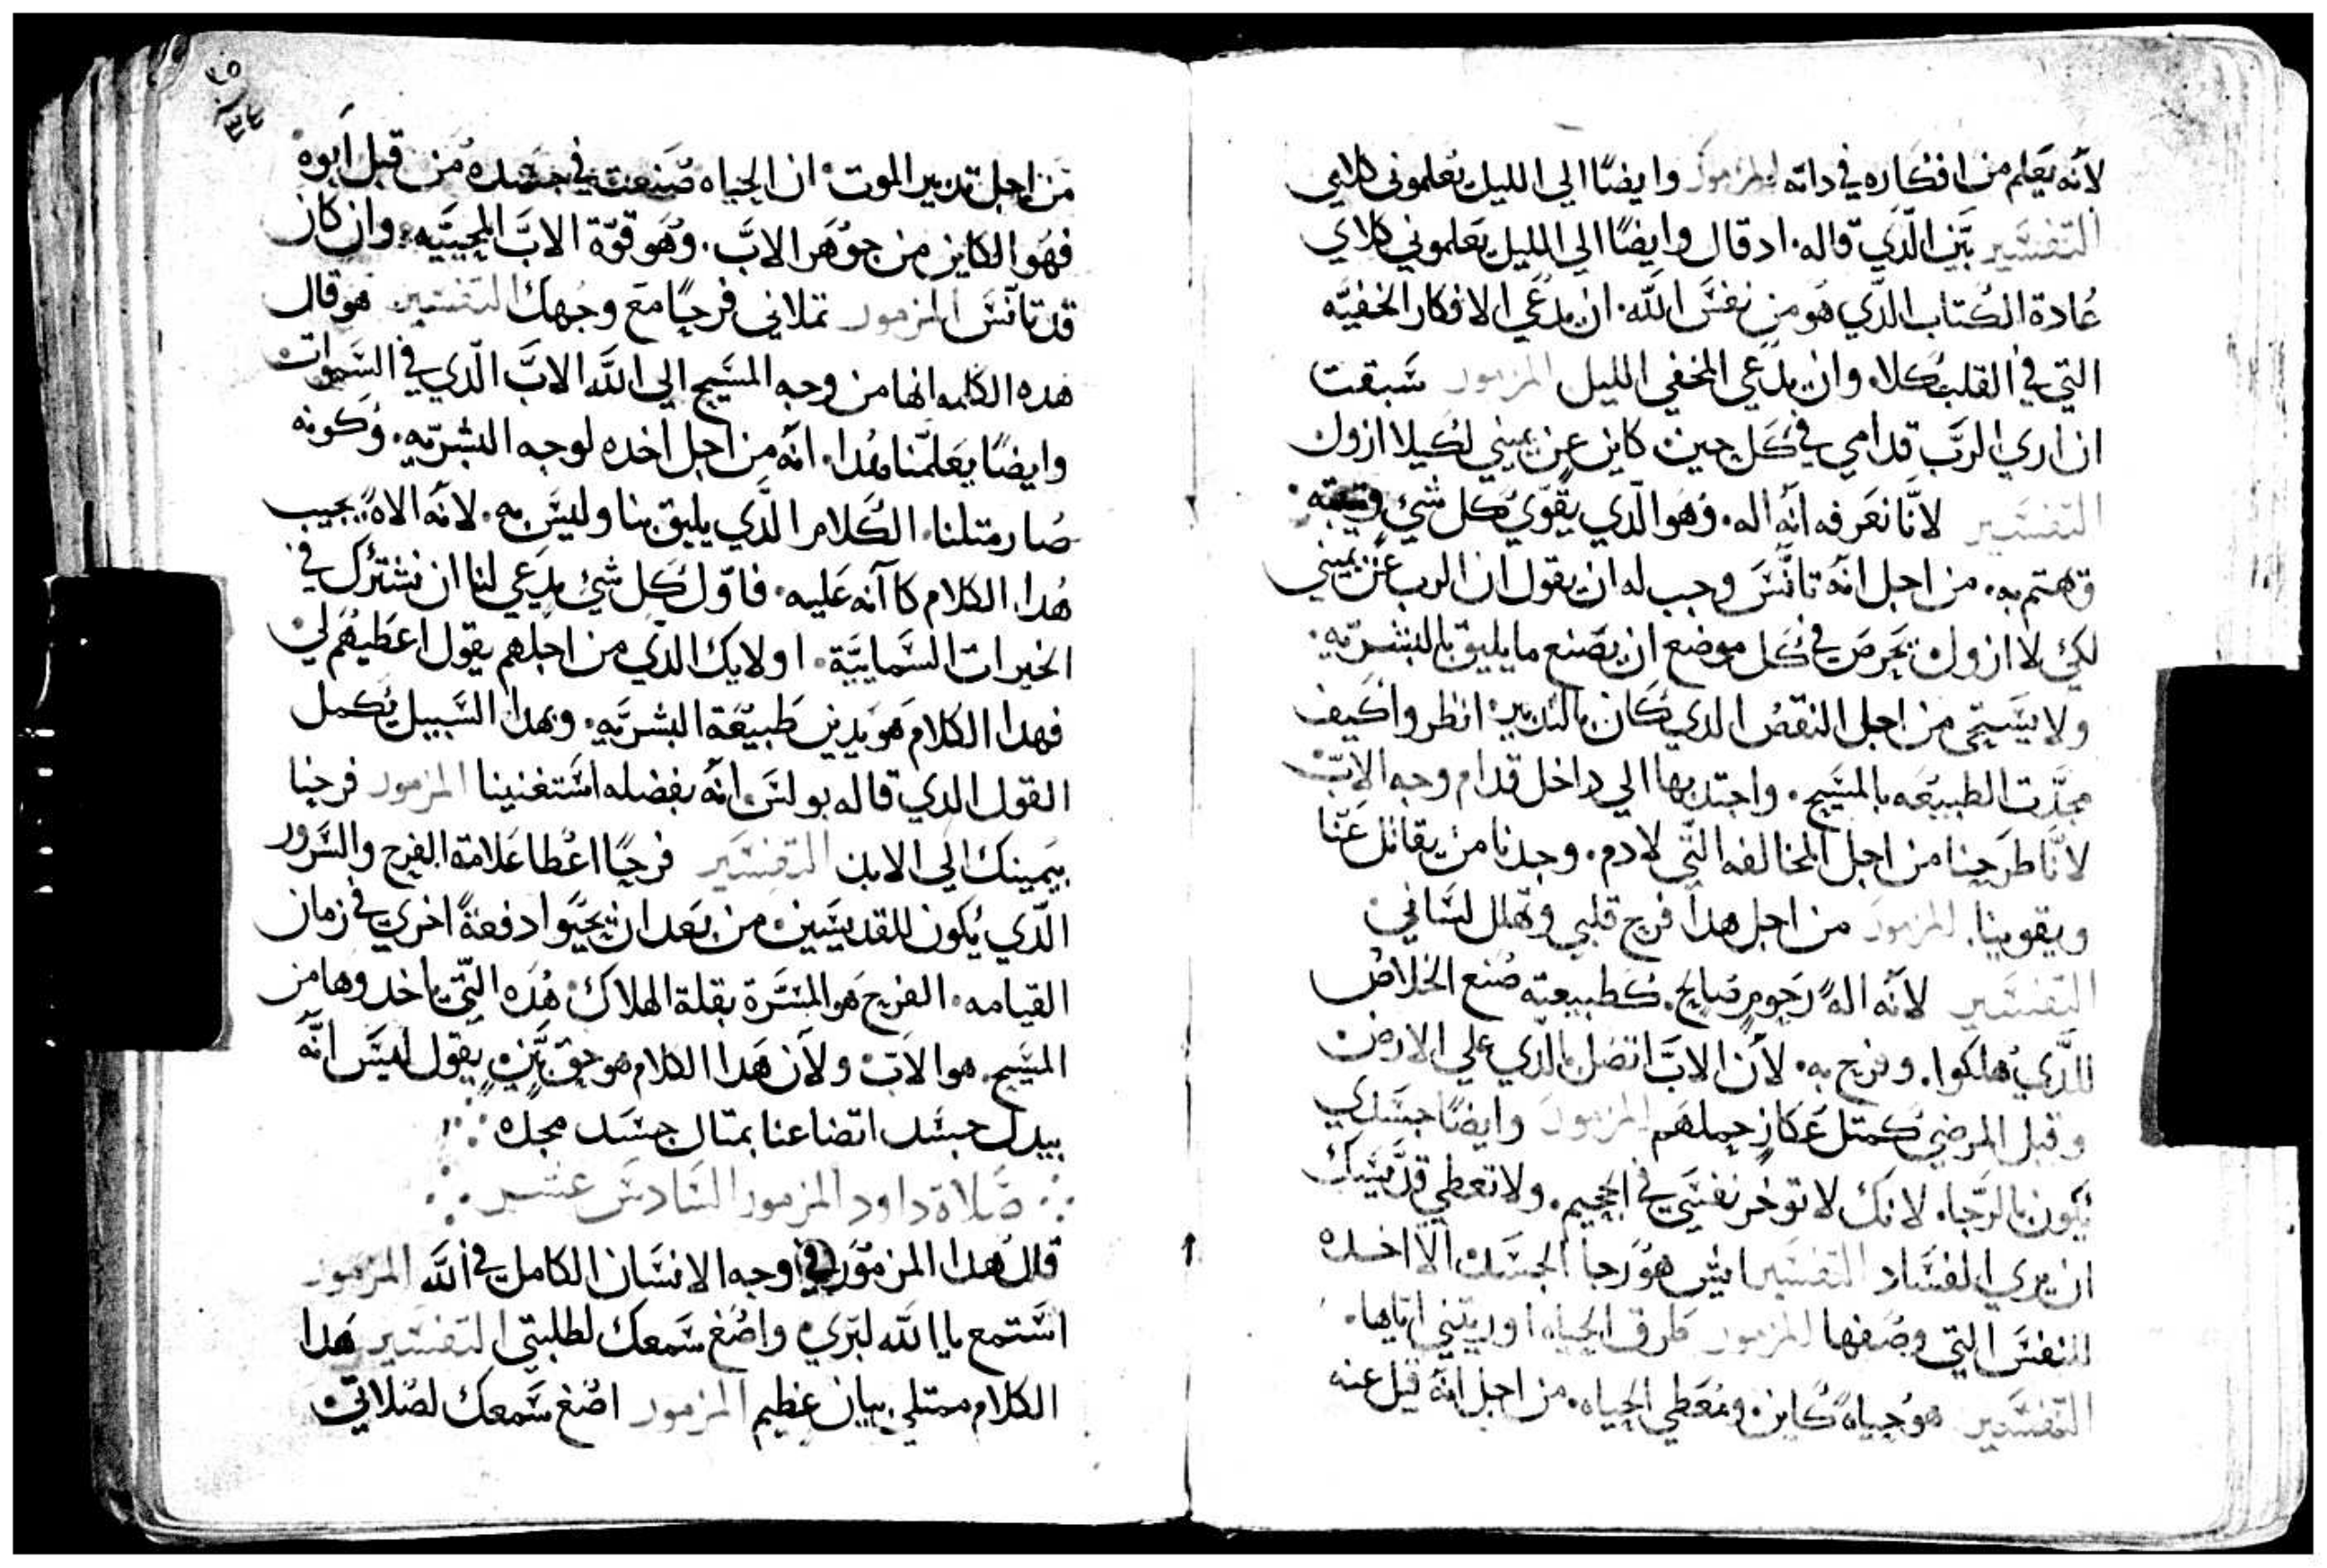 لأنه يعلم من افكاره في داته المزمور وايضًا الي الليل يُعلموني كلاي
التفسير بيّن الّدي قاله. اد قال وايضًا الي الليل يَعلموني كلاي
عادة الكتاب الدّي هو من نفسَ اللّه. ان يدعي الافكار الخفيّه
التي في القلب كلاء وان يدعي المخفي الليل المزمور سَبقت
ان اري الربَّ قدامي في كَل حين كاين عن يميني لكيلا ازول
التفسير لانَّا نعَرفه انّه اله. وَهو الدّي يقّوي كل شي
وَهتم به. من اجل انّه تانّسَ وجب له ان يقول ان الرب عَن يميني
لكي لا ازول يحَرصَ في كَل موضع ان يصَنع ما يليق بالبشَريّه.
ولا يسَتحي من اجل النقص الدي كان بالتدبير انظروا كيف
مجدَّت الطبيعَه بالمسَيح. واجتدبها الي داخل قدام وجه الابَّ
لانّا طرَحنا من اجل المخالفه التّي لادم. وجدنا من يقاتل عَنّا
ويقوينا. المزمور من اجل هدا فرح قلبي وتهلل لسَاني
التفسَير لانّه الهً رَحوم صَالح. كطبيعته صَنع الخلاص
للدَّي هلكوا. وفرح به. لأن الابَّ اتصَل بالدّي علي الارض
وقبل المرضي كمتل عَكاز حملهم المزمور وايضًا جسَدي
يكون بالرّجا. لانك لا توخر نفسَي في الجحيم. ولا تعطي قدّيسَك
ان يري الفسَاد التفسَير ايش هو رَجا الجسَد الا اخده
للنفسَ التي وصَفها المزمور طرق الحياه اوريتني ايّاها.
التّفسَير هو حياه كاين ومُعَطي الحياه. من اجل انّه قيل عنه
من اجل تدبير الموت ان الحياه صَنعته في جسَده من قبل اَبوه
فهَو الكاين من جوُهَر الابَّ. وَهَو قوّة الابَّ المحييَّه. وان كان
قد تآنسَ المزمور تملاني فرحًا مَع وجُهك التفسَير هو قال
هده الكلمه انها من وجه المسَيح الي اللَّه الابَّ الّدي في السَموات
وايضًا يعَلمّنا هَدا. انّه من اجل اخده لوجه البشريّه. وكونه
صَار متلنا. الكَلام الدَّي يليق بنا وليسَ به. لانّه الاهً يجيب
هَدا الكلام كاآنه عَليه. فاوّل كَل شي يدعَي لنا ان نشترك في
الخيرات السَّماييّة. اولايك الدّي من اجلهم يقول اعَطيهَم لي
فهدا الكلام هو يدين طبيعَة البشريَّه. وبهدا السَّبيل يُكمل
القول الدي قاله بولسَ انّه بفضله اسَتغنينا المزمور فرحنا
بيَمينك الي الابد التفسَير فرحًا اعُطا علامة الفرح والسَرور
الدّي يُكون للقديسَين من بعَد ان يحيَوا دفعةً اخري في زمان
القيامه. الفرح هَو المسَرّة بقلة الهلاك. هَده التّي ياخدوها من
المسَيح. هو الات ولأن هَدا الكلام هو حق بيّن. يقول ليسَ انَّه
يبدل جسَد اتضاعنا بمتال جسَد مجده
صَلاة داود المزمور السَادسَ عشر
قال هَدا المزمور في وجه الانسَان الكامل في اللَّه المزمور
اسَتمع يا اللَّه لبَري واصَغ سَمعك لطلبتي التفسَير هَدا
الكلام ممتلي بيان عظيم المزمور اصَغ سَمعك لصَلاتي